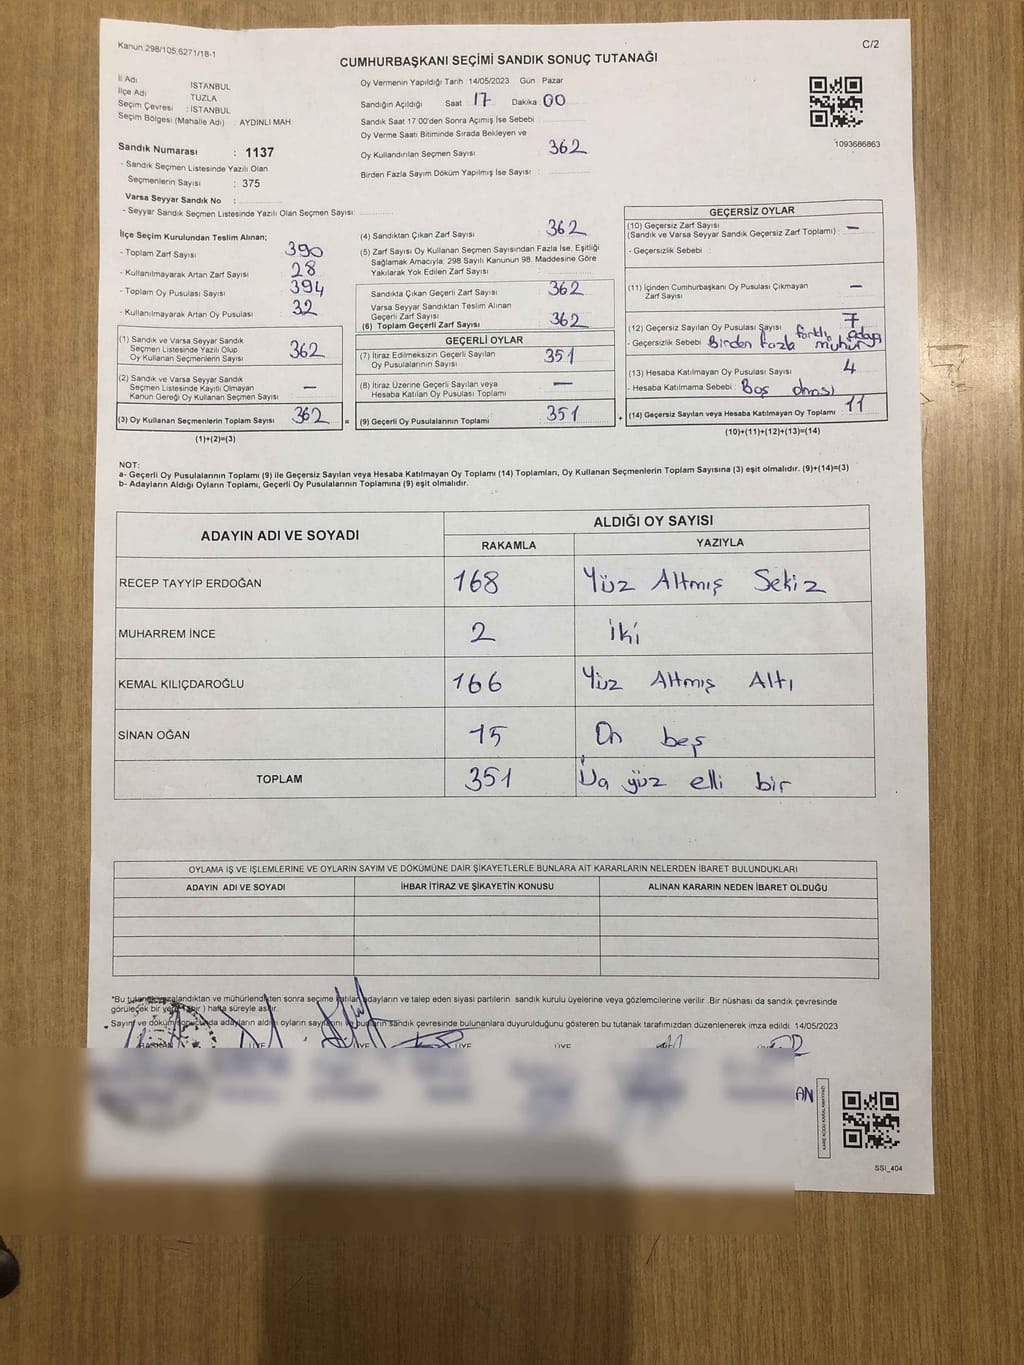 Kanun:298/105;6271/18-1
C/2
CUMHURBAŞKANI SEÇİMİ SANDIK SONUÇ TUTANAĞI
İl Adı : İSTANBUL
İlçe Adı : TUZLA
Seçim Çevresi : İSTANBUL
Seçim Bölgesi (Mahalle Adı) : AYDINLI MAH.
Sandık Numarası : 1137
- Sandık Seçmen Listesinde Yazılı Olan
Seçmenlerin Sayısı : 375
Varsa Seyyar Sandık No :
- Seyyar Sandık Seçmen Listesinde Yazılı Olan Seçmen Sayısı:
Oy Vermenin Yapıldığı Tarih 14/05/2023 Gün Pazar
Sandığın Açıldığı Saat 17 Dakika 00
Sandık Saat 17:00'den Sonra Açılmış İse Sebebi
Oy Verme Saati Bitiminde Sırada Bekleyen ve
Oy Kullandırılan Seçmen Sayısı : 362
Birden Fazla Sayım Döküm Yapılmış İse Sayısı :
1093686863
İlçe Seçim Kurulundan Teslim Alınan;
- Toplam Zarf Sayısı : 390
- Kullanılmayarak Artan Zarf Sayısı : 28
- Toplam Oy Pusulası Sayısı : 394
- Kullanılmayarak Artan Oy Pusulası : 32
(1) Sandık ve Varsa Seyyar Sandık
Seçmen Listesinde Yazılı Olup
Oy Kullanan Seçmenlerin Sayısı : 362
(2) Sandık ve Varsa Seyyar Sandık
Seçmen Listesinde Kayıtlı Olmayan
Kanun Gereği Oy Kullanan Seçmen Sayısı : —
(3) Oy Kullanan Seçmenlerin Toplam Sayısı : 362 =
(1)+(2)=(3)
(4) Sandıktan Çıkan Zarf Sayısı : 362
(5) Zarf Sayısı Oy Kullanan Seçmen Sayısından Fazla İse, Eşitliği
Sağlamak Amacıyla; 298 Sayılı Kanunun 98. Maddesine Göre
Yakılarak Yok Edilen Zarf Sayısı :
Sandıkta Çıkan Geçerli Zarf Sayısı : 362
Varsa Seyyar Sandıktan Teslim Alınan
Geçerli Zarf Sayısı :
(6) Toplam Geçerli Zarf Sayısı : 362
GEÇERLİ OYLAR
(7) İtiraz Edilmeksizin Geçerli Sayılan
Oy Pusulalarının Sayısı : 351
(8) İtiraz Üzerine Geçerli Sayılan veya
Hesaba Katılan Oy Pusulası Toplamı : —
(9) Geçerli Oy Pusulalarının Toplamı : 351 +
GEÇERSİZ OYLAR
(10) Geçersiz Zarf Sayısı
(Sandık ve Varsa Seyyar Sandık Geçersiz Zarf Toplamı) : —
- Geçersizlik Sebebi :
(11) İçinden Cumhurbaşkanı Oy Pusulası Çıkmayan
Zarf Sayısı : —
(12) Geçersiz Sayılan Oy Pusulası Sayısı : 7
- Geçersizlik Sebebi : Birden fazla farklı adaya mühür
(13) Hesaba Katılmayan Oy Pusulası Sayısı : 4
- Hesaba Katılmama Sebebi : Boş olması
(14) Geçersiz Sayılan veya Hesaba Katılmayan Oy Toplamı : 11
(10)+(11)+(12)+(13)=(14)
NOT:
a- Geçerli Oy Pusulalarının Toplamı (9) ile Geçersiz Sayılan veya Hesaba Katılmayan Oy Toplamı (14) Toplamları, Oy Kullanan Seçmenlerin Toplam Sayısına (3) eşit olmalıdır. (9)+(14)=(3)
b- Adayların Aldığı Oyların Toplamı, Geçerli Oy Pusulalarının Toplamına (9) eşit olmalıdır.
ADAYIN ADI VE SOYADI ALDIĞI OY SAYISI
RAKAMLA YAZIYLA
RECEP TAYYİP ERDOĞAN 168 Yüz Altmış Sekiz
MUHARREM İNCE 2 iki
KEMAL KILIÇDAROĞLU 166 Yüz Altmış Altı
SİNAN OĞAN 15 On beş
TOPLAM 351 yüz elli bir
OYLAMA İŞ VE İŞLEMLERİNE VE OYLARIN SAYIM VE DÖKÜMÜNE DAİR ŞİKAYETLERLE BUNLARA AİT KARARLARIN NELERDEN İBARET BULUNDUKLARI
ADAYIN ADI VE SOYADI İHBAR İTİRAZ VE ŞİKAYETİN KONUSU ALINAN KARARIN NEDEN İBARET OLDUĞU
*Bu tutanak yazalandıktan ve mühürlendikten sonra seçime katılan adayların ve talep eden siyasi partilerin sandık kurulu üyelerine veya gözlemcilerine verilir .Bir nüshası da sandık çevresinde
görülecek bir yere ( bir ) hafta süreyle asılır.
Sayım ve döküm sonucunda adayların aldığı oyların sayılarını ve bunların sandık çevresinde bulunanlara duyurulduğunu gösteren bu tutanak tarafımızdan düzenlenerek imza edildi. 14/05/2023
BAŞKAN ÜYE ÜYE ÜYE ÜYE
AN
SSI_404